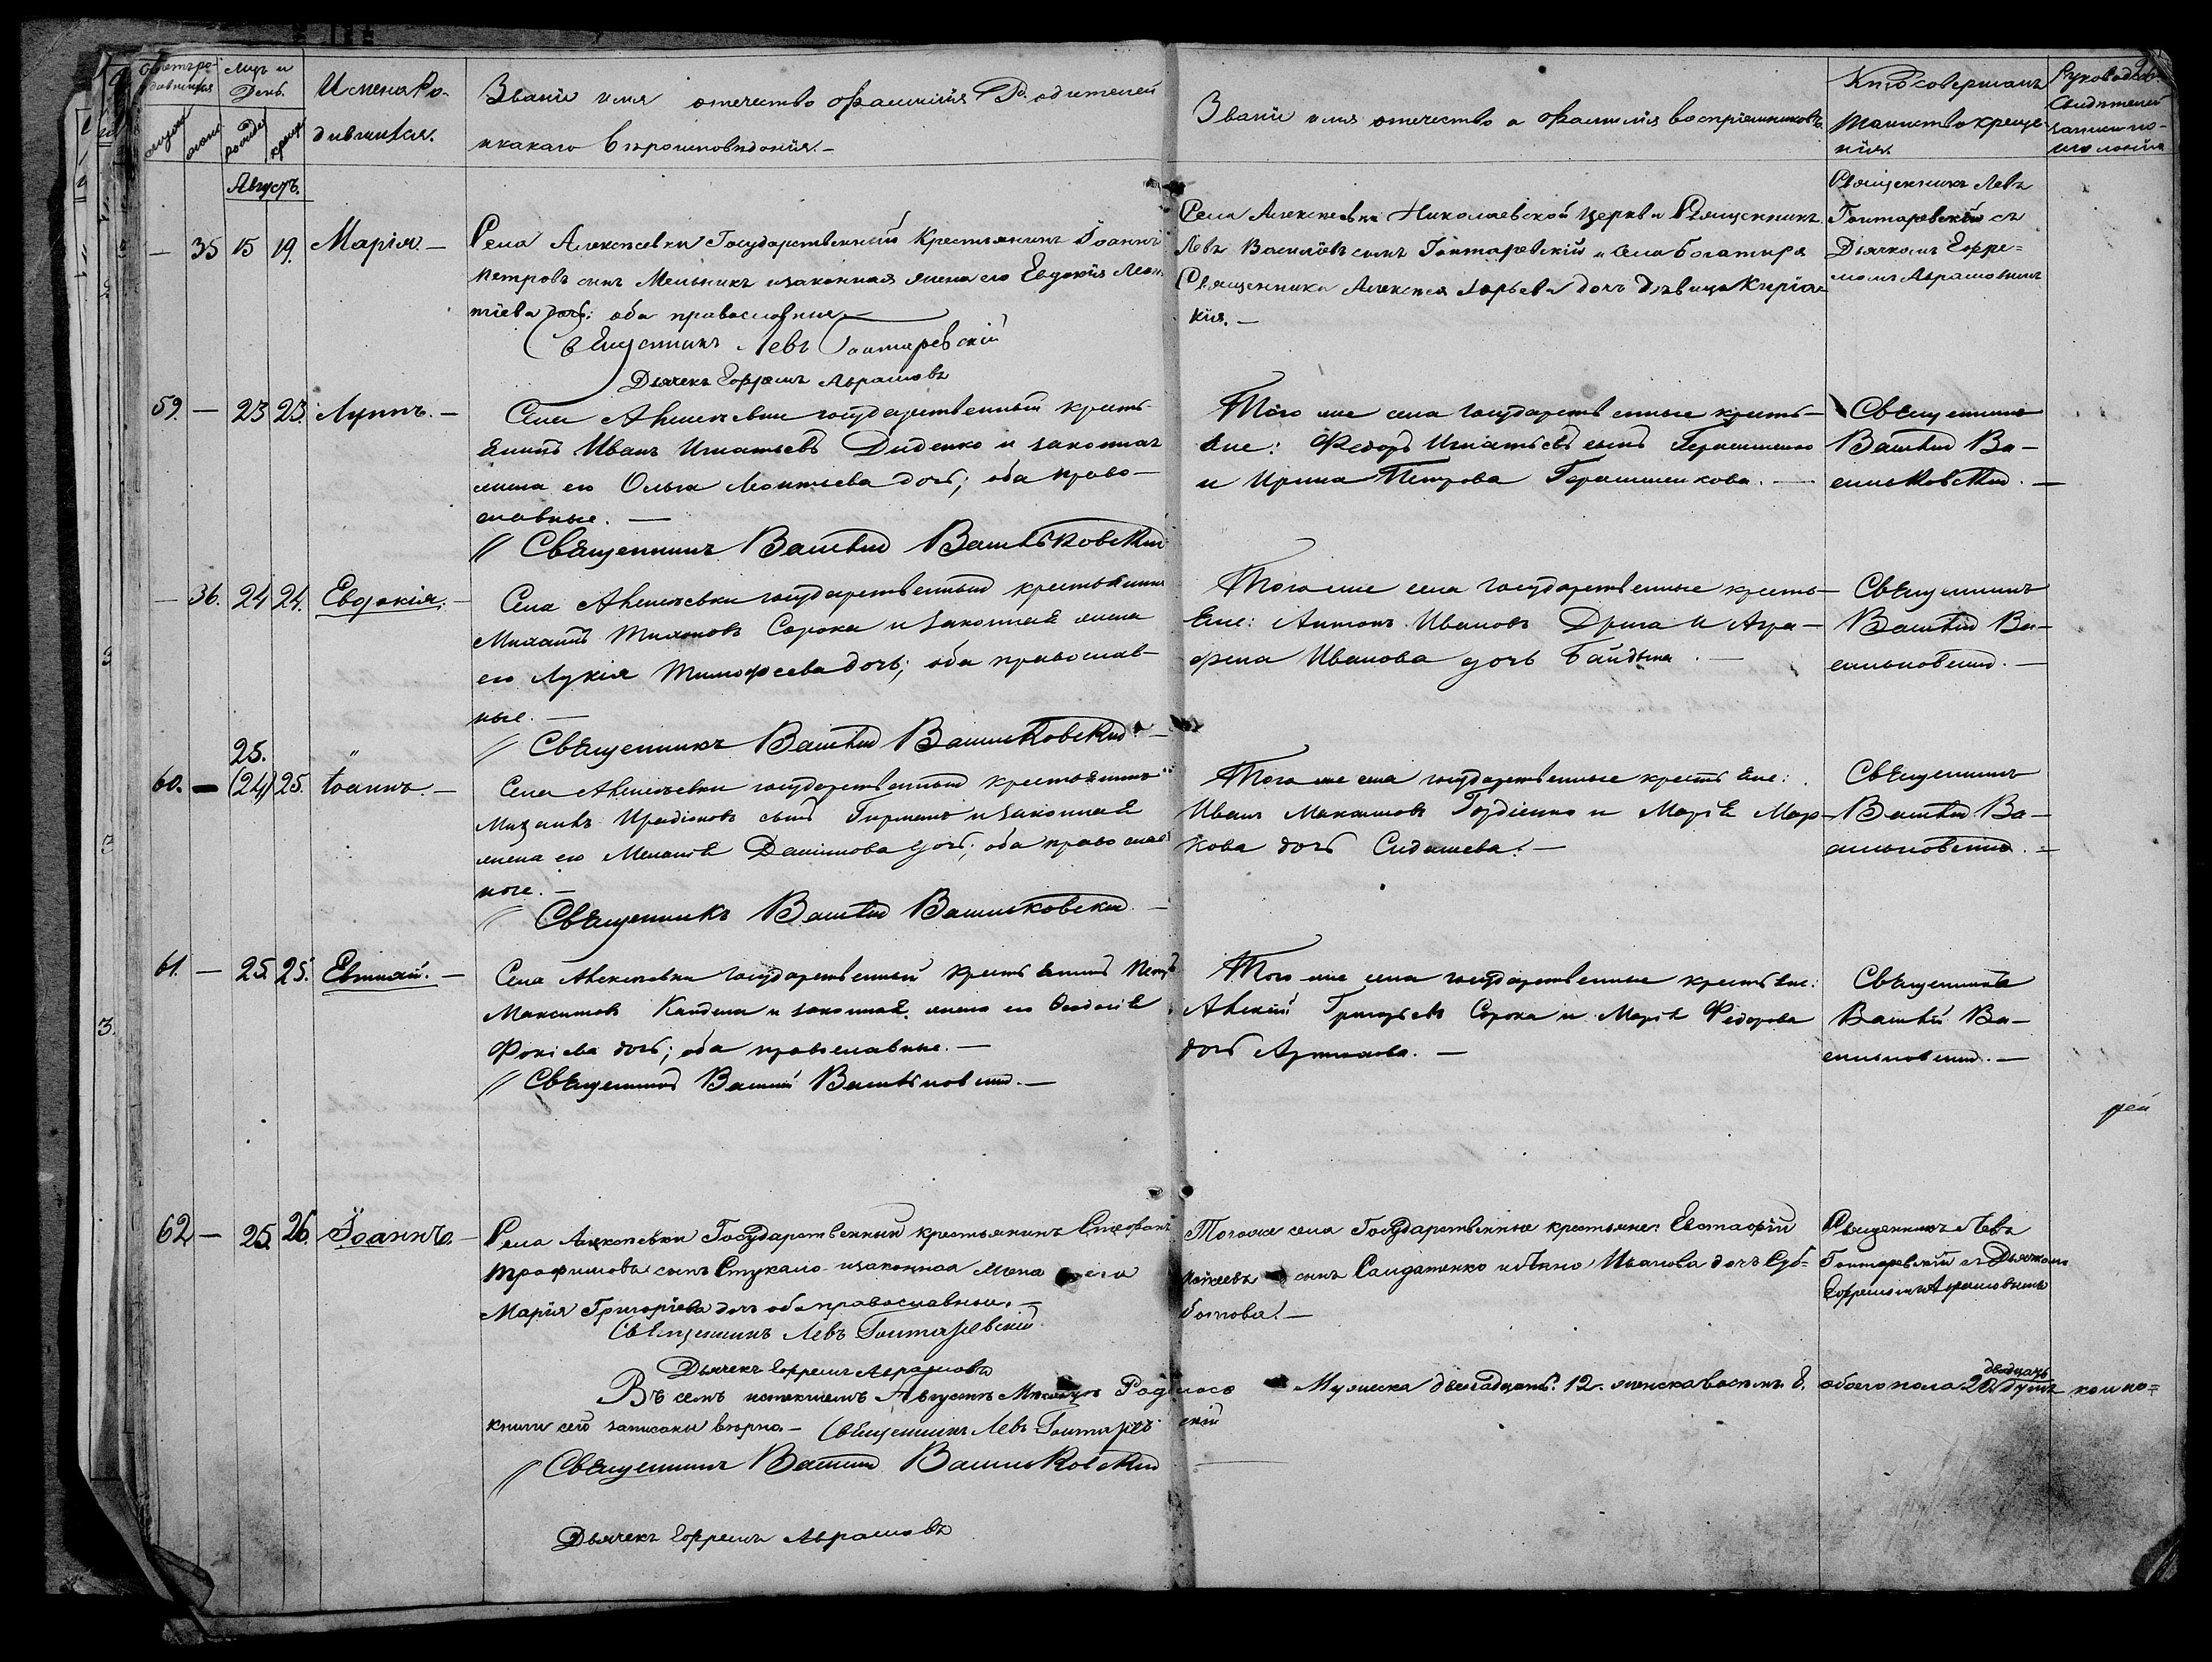 Счетъ ро-
дившихся
Мцъ и
День.
Имена Ро-
дившихся.
Званіе имя отечество и фамилія Родителей
и какаго вѣроисповѣданія. —
Званіе имя отечество и фамилія воспріемниковъ.
Кто совершалъ
таинство креще-
нія.
Рукоприклад.
свидѣтелей
записи по
желанію
Августъ.
— 35 15 19. Марія. —
Села Алексѣевки Государственный Крестьянинъ Іоаннъ
Петровъ сынъ Мельникъ и законная жена его Евдокія Леон-
тіева дочь; оба православныя. —
Священникъ Левъ Гонтаревскій
Дьячекъ Ефремъ Абрамовъ
Села Алексѣевки Николаевской церкви Священникъ
Левъ Василіевъ сынъ Гонтаревскій и села Богатыря
Священника Алексѣя Юрьева дочь дѣвица Киріа-
кія. —
Священникъ Левъ
Гонтаревскій съ
Дьячкомъ Ефре-
момъ Абрамовымъ
59. — 23 23. Луппъ. —
Села Алексѣевки государственный кресть-
янинъ Иванъ Игнатьевъ Диденко и законная
жена его Ольга Леонтьева дочь; оба право-
славные. —
Священникъ Василій Васильковскій
Того же села государственные кресть-
яне: Федоръ Игнатьевъ сынъ Герашченко
и Ирина Петрова Геращенкова. —
Священникъ
Василій Ва-
сильковскій. —
— 36. 24 24. Евдокія. —
Села Алексѣевки государственный крестьянинъ
Михаилъ Тихоновъ Сорока и законная жена
его Лукія Тимофеева дочь; оба православ-
ные. —
Священникъ Василій Васильковскій —
Того же села государственные кресть-
яне: Антонъ Ивановъ Дрига и Агра-
фена Иванова дочь Байдина. —
Священникъ
Василій Ва-
сильковскій. —
25.
60. — (24) 25. Іоаннъ. —
Села Алексѣевки государственный крестьянинъ
Михаилъ Иродіоновъ сынъ Гирманъ и законная
жена его Меланія Даніилова дочь; оба православ-
ные. —
Священникъ Василій Васильковскій —
Того же села государственные крестьяне:
Иванъ Максимовъ Гордіенко и Марія Мар-
кова дочь Сидашева. —
Священникъ
Василій Ва-
сильковскій. —
61. — 25 25. Евтихій. —
Села Алексѣевки государственный крестьянинъ Петръ
Максимовъ Кандела и законная жена его Феодосія
Фокіева дочь; оба православные. —
Священникъ Василій Васильковскій. —
Того же села государственные крестьяне:
Алексій Григорьевъ Сорока и Марія Федорова
дочь Артюхова. —
Священникъ
Василій Ва-
сильковскій. —
рей
62 — 25 26. Іоаннъ. —
Села Алексѣевки Государственный крестьянинъ Стефанъ
Трофимовъ сынъ Стукало и законная жена его
Марія Григоріева дочь оба православныи. —
Священникъ Левъ Гонтаревскій
Дьячекъ Ефремъ Абрамовъ
Того же села Государственные крестьяне: Евстафій
Моисеевъ сынъ Солидатенко и Иванова дочь Суб-
ботова. —
Священникъ Левъ
Гонтаревскій съ Дьячкомъ
Ефремомъ Абрамовымъ
Въ семъ истекшемъ Августѣ Мѣсяцѣ Родилось Мужеска двенадцать 12. женска восемь 8. обоего пола двадцать 20 душъ кои по-
книги сей записаны вѣрно. — Священникъ Левъ Гонтаревскій
Священникъ Василій Васильковскій
Дьячекъ Ефремъ Абрамовъ